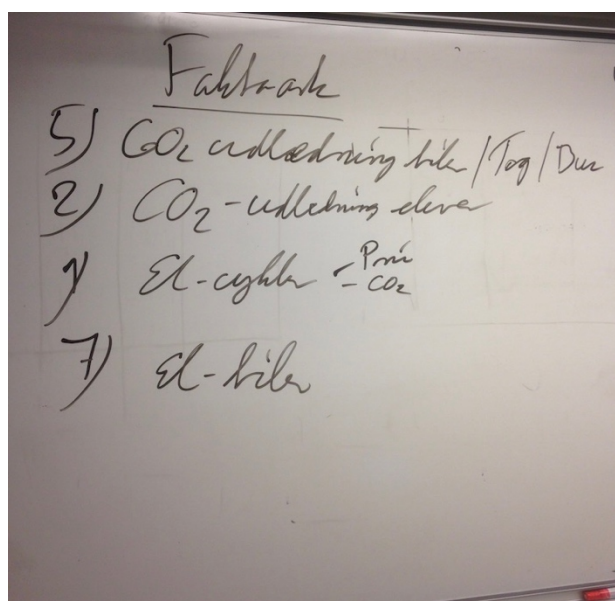 Faktaark
5) CO2 udledning biler / Tog / Bus
2) CO2-udledning elever
1) El-cykler - Pris
- CO2
7) El-biler